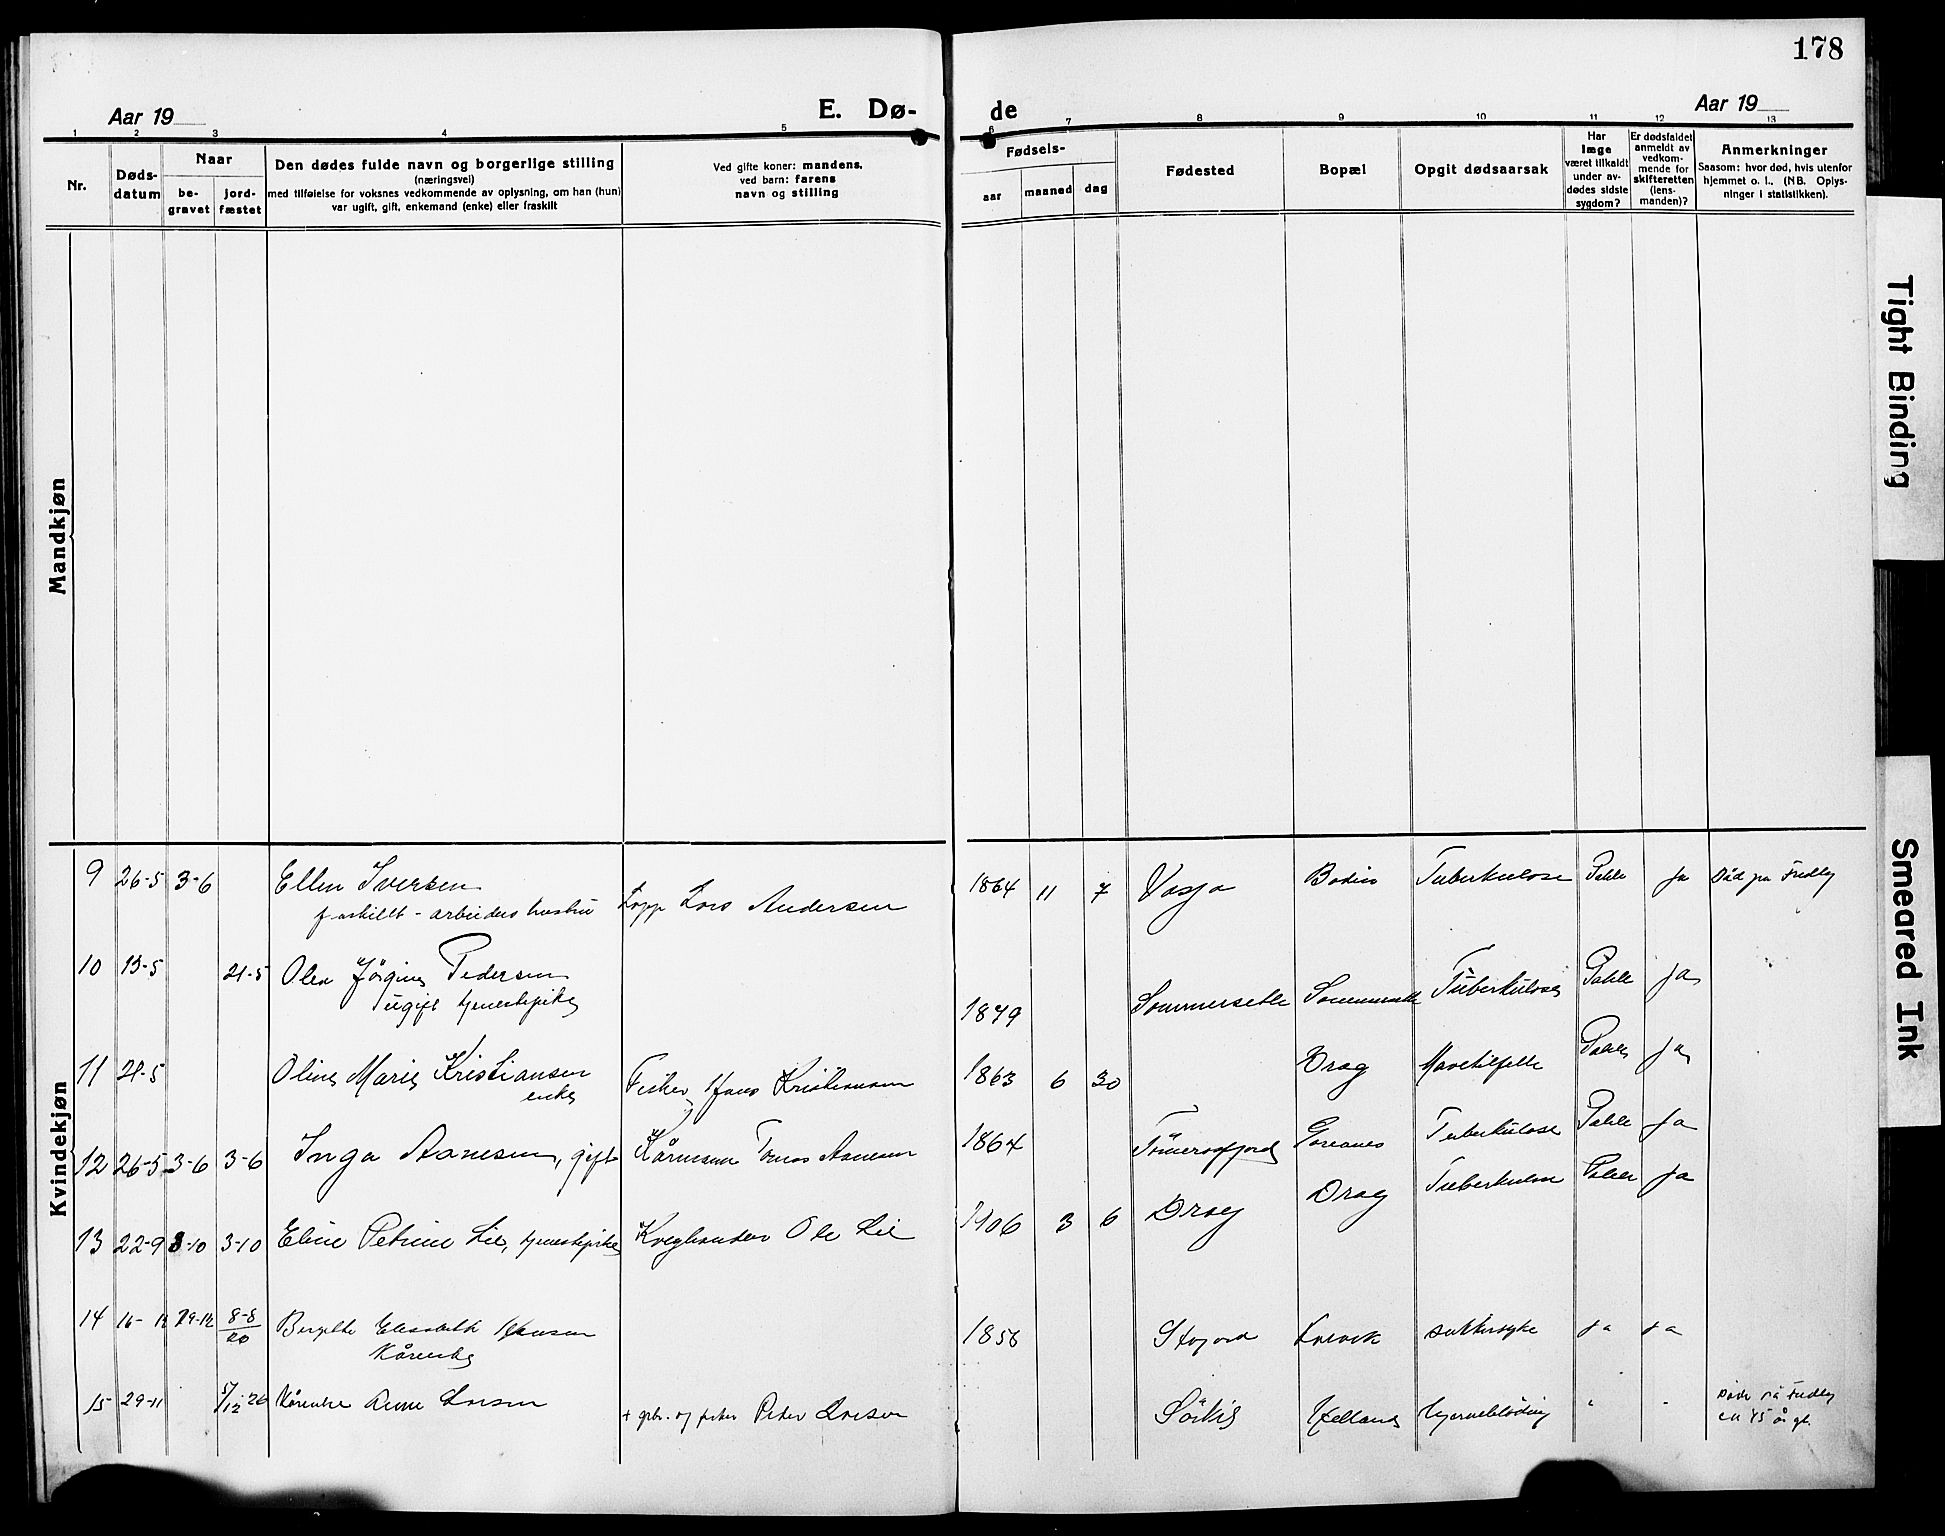 178
Aar 19
E. Dø-
de
Aar 19
1 2 3 4 5 6 7 8 9 10 11 12 13
Nr.
Døds-
datum
Naar
be-
gravet
jord-
fæstet
Den dødes fulde navn og borgerlige stilling
(næringsvei)
med tilføielse for voksnes vedkommende av oplysning, om han (hun)
var ugift, gift, enkemand (enke) eller fraskilt
Ved gifte koner: mandens,
ved barn: farens
navn og stilling
Fødsels-
aar
maaned
dag
Fødested
Bopæl
Opgit dødsaarsak
Har
læge
været tilkaldt
under av-
dødes sidste
sygdom?
Er dødsfaldet
anmeldt av
vedkom-
mende for
skifteretten
(lens-
manden)?
Anmerkninger
Saasom: hvor død, hvis utenfor
hjemmet o. l., (NB. Oplys-
ninger i statistikken).
Mandkjøn
Kvindekjøn
9 26-5 3-6 Ellen Iversen
fraskillt - arbeiders hustru
Lapp Lars Andersen 1864 11 7 Vasja Bodin Tuberkulose ja
10 13-5 21-5 Olea Jørgine Pedersen
ugift tjenestepike
1849 Sommersette Sommersette Tuberkulose ja
11 21-5 Oline Marie Kristiansen
enke
Fisker Hans Kristiansen 1863 6 30 Drag Mavetilfelle ja
12 26-5 3-6 3-6 Inga Aanesen, gift Kårmann Tomas Aanesen 1864 Tømersfjord Tuberkulose ja
13 22-9 3-10 3-10 Eline Petrine Lie, tjenestepike Ole Lie 1906 3 6 Drag Drag Tuberkulose ja
14 16-12 29-12 8-8
20
Bergitte Elisabeth Hansen
Kårenke
1858 sukkersyke ja ja
15 29-11 5/12 26 Kårenke Anne Larsen + gbr. og fisker Peder Larsen Helland Hjerneblødning " "
Tight Binding
Smeared Ink